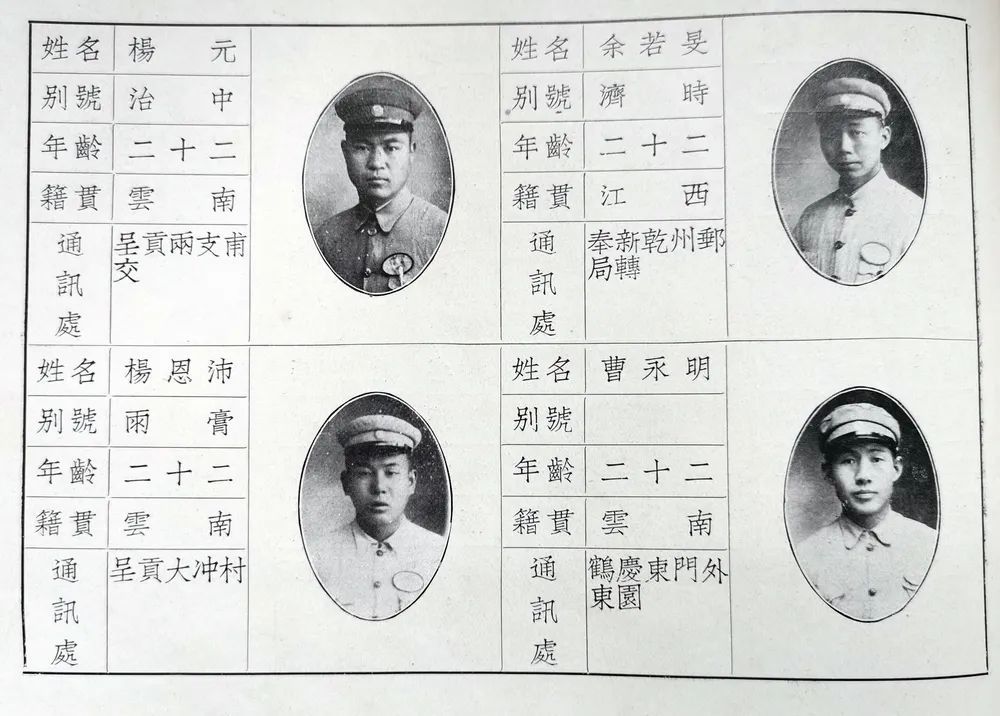 姓名 楊元
別號 治中
年齡 二十二
籍貫 雲南
通訊處 呈貢兩支甫
交
姓名 余若旻
別號 濟時
年齡 二十二
籍貫 江西
通訊處 奉新乾州郵
局轉
姓名 楊恩沛
別號 雨膏
年齡 二十二
籍貫 雲南
通訊處 呈貢大冲村
姓名 曹永明
別號
年齡 二十二
籍貫 雲南
通訊處 鶴慶東門外
東園